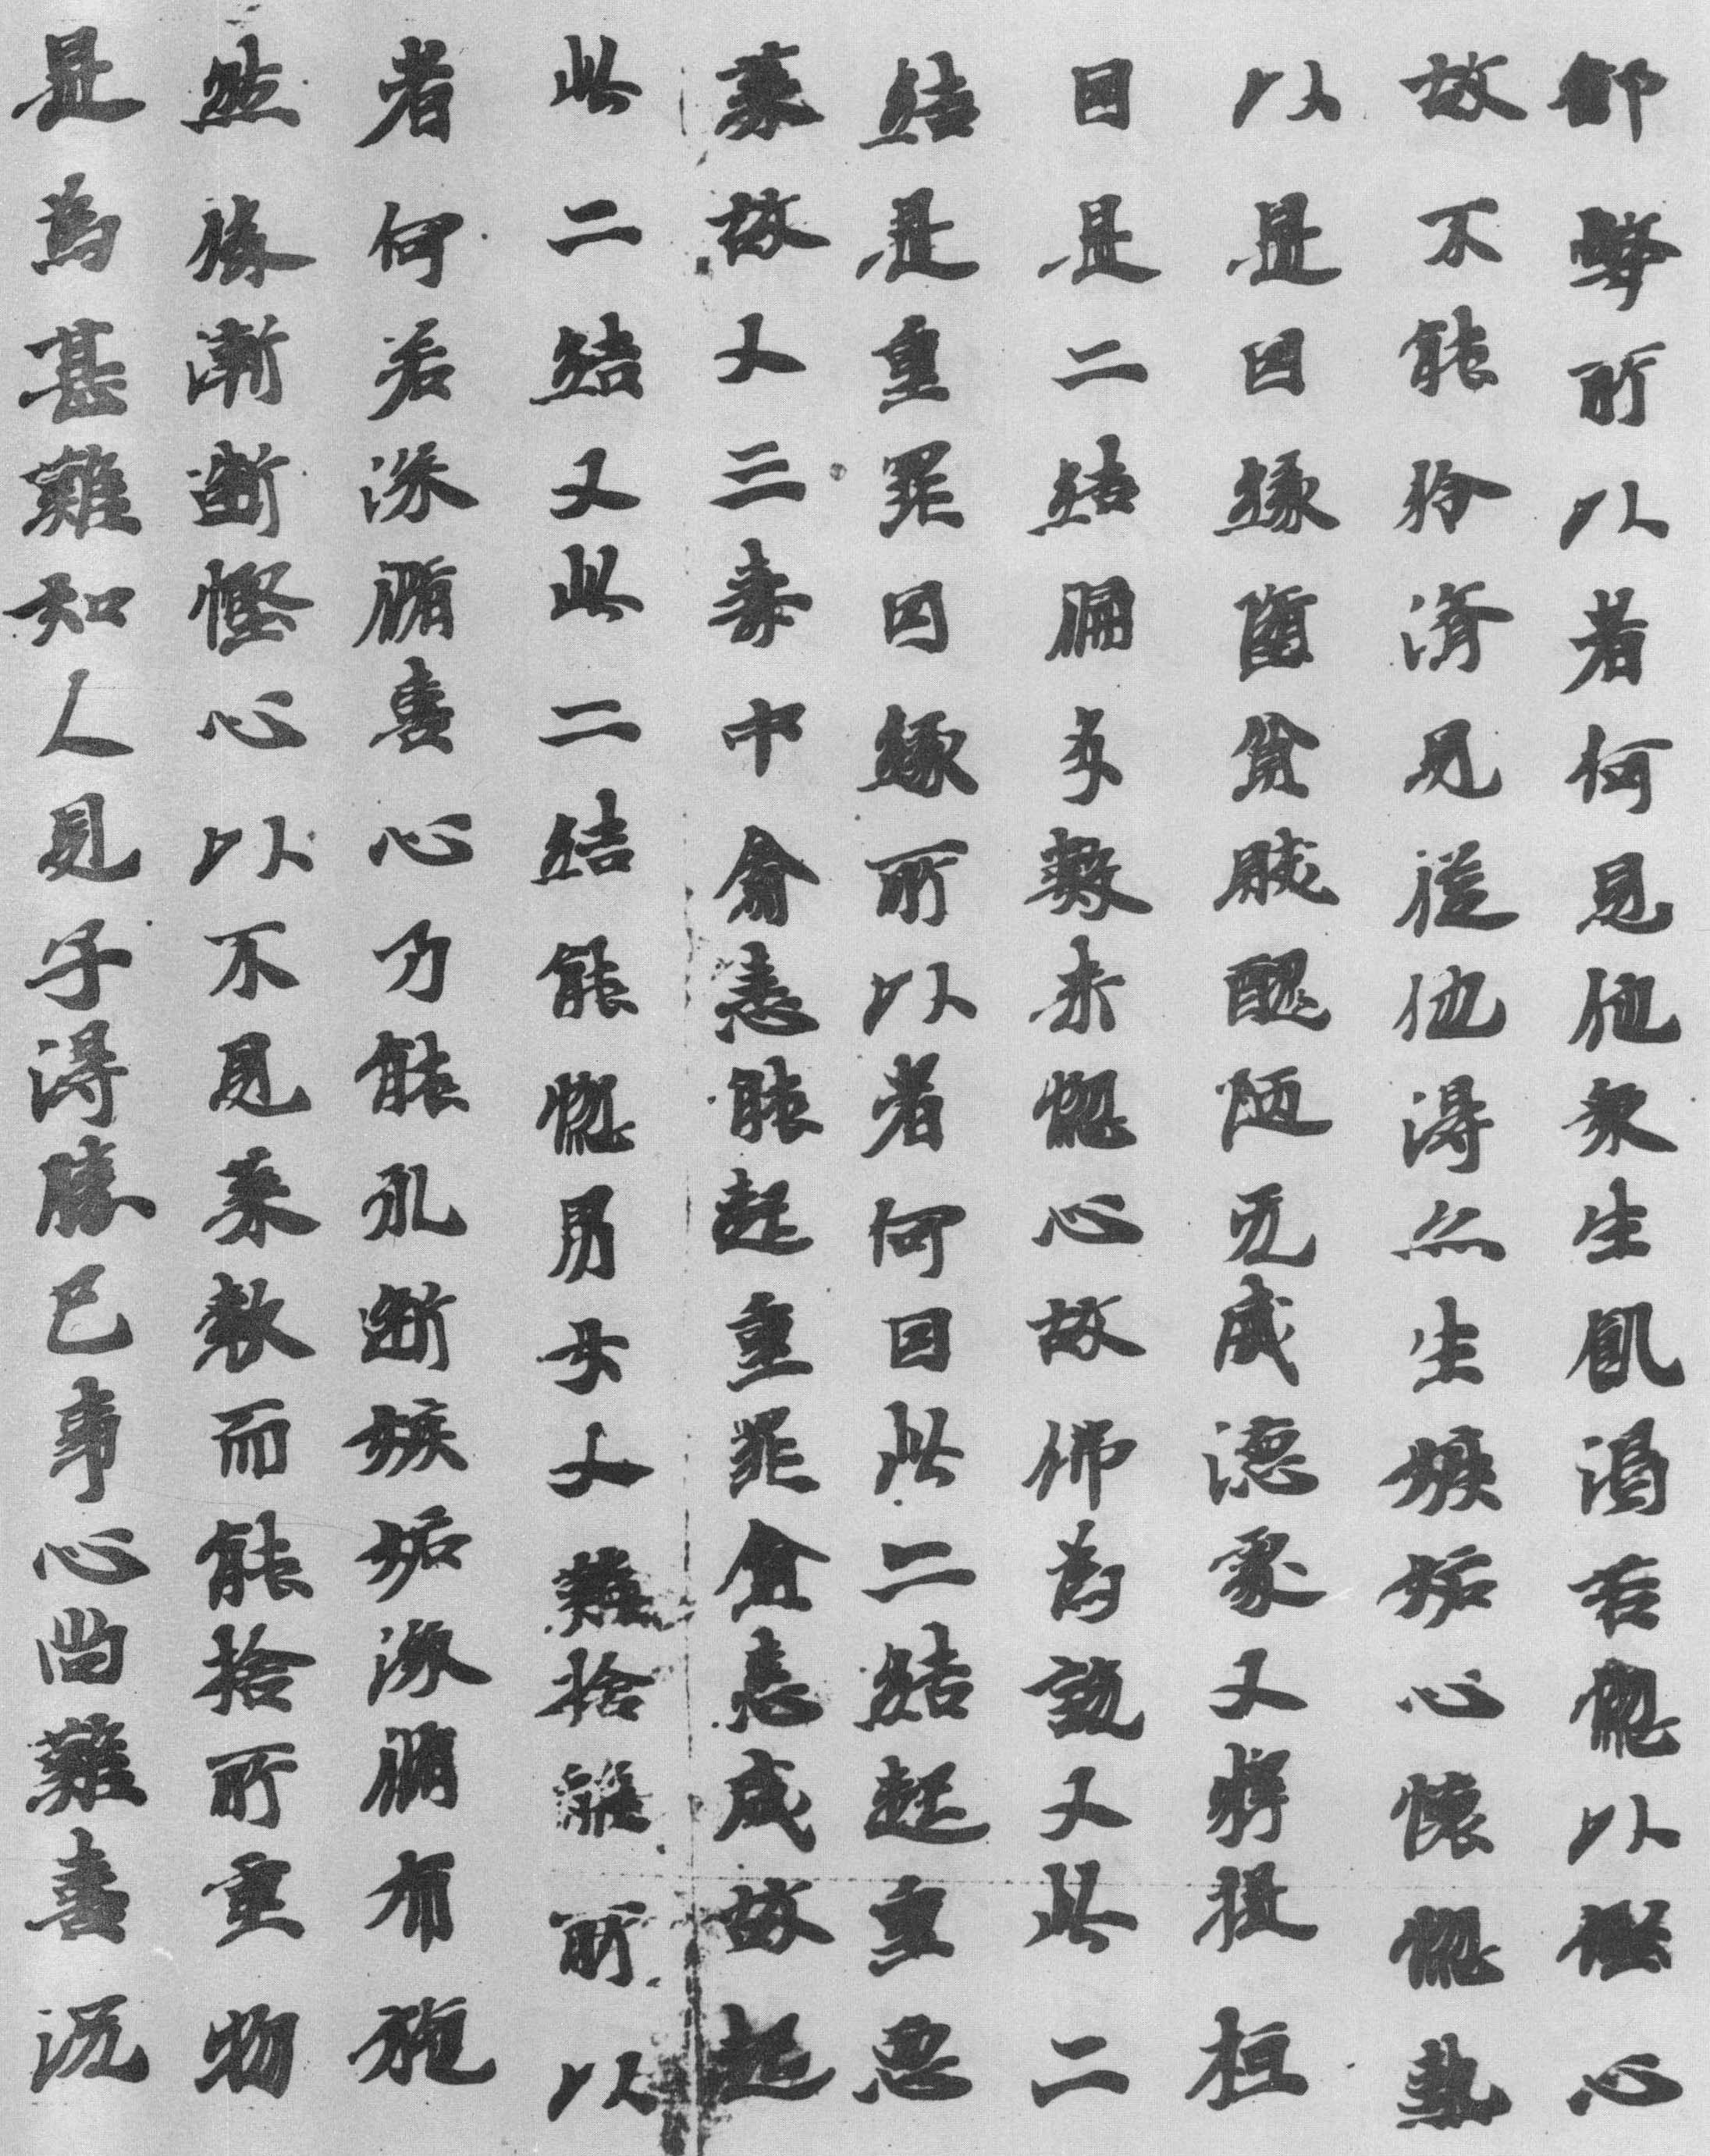 鄙弊所以者何見他衆生飢渴苦惱以慳心
故不能矜濟見從他得亦生嫉妬心懷惱熱
以是因緣墮貧賤醜陋无威德處又釋提桓
因是二結偏多數來惱心故佛為說又此二
結是重罪因緣所以者何因此二結起重惡
業故又三毒中貪恚能起重罪貪恚盛故起
此二結又此二結能惱男女又難捨離所以
者何若深脩善心乃能永斷嫉妬深脩布施
然後漸斷慳心以不見業報而能捨所重物
是為甚難如人見子得勝己事心尚難喜況